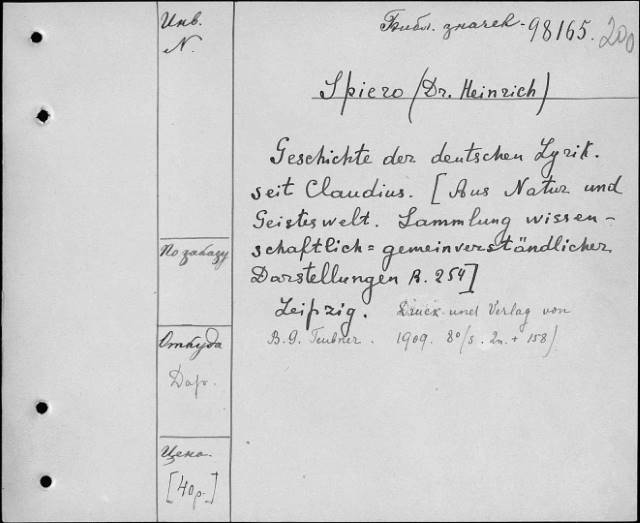 Инв.
N.
Библ. значек - 98165. 200
Spiero (Dr. Heinrich)
Geschichte der deutschen Lyrik.
seit Claudius. [Aus Natur und
Geisteswelt. Sammlung wissen-
schaftlich = gemeinverständlicher
Darstellungen B. 254]
Leipzig. Druck und Verlag von
B. G. Teubner. 1909. 8º/s. 2n. + 158)
По заказу
Откуда
Дар.
Цена.
[40р.]